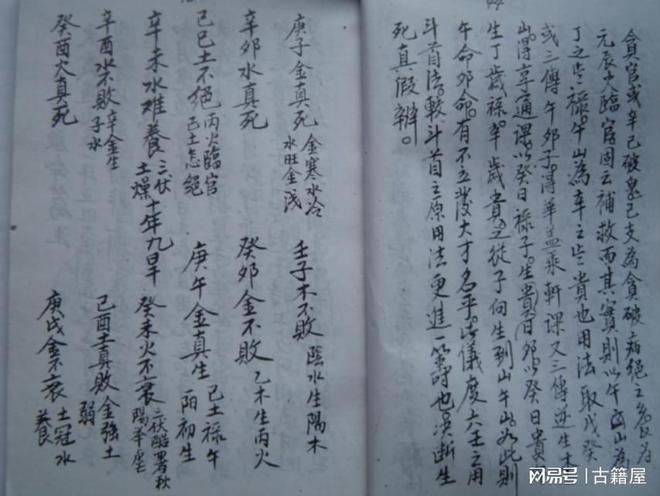 貪官或辛己破鬼己支為貪破病絕之名良為
元辰火臨官固云補救而其實則以午酉山為
丁之岂禄午山為辛之岂貴也用法取戊癸
或三傳午卯子得華盖乘軒課又三傳逆生木
山得亨通課以癸日禄子生貴日卯以癸日貴
生丁歲禄辛歲貴並從子向生到山午山如此則
午命卯命有不立發大才名乎此儀度六壬之用
斗首法較斗首之原用法更進一籌也
死真假辨
庚子金真死 金寒水冷
水旺金浅
壬子木不敗 陰水生陽木
辛卯水真死
癸卯金不敗 乙木生丙火
己巳土不絕 丙火臨官
己土怎絕
庚午金真生 己土禄午
一陽初生
辛未水难養 三伏
土燥十年九旱
癸未火不衰 三伏酷暑秋
陽
辛酉水不敗 辛金生
子水
己酉土真敗 金強土
弱
癸酉火真死
庚戌金不衰 土冠水
養
网易号 | 古籍屋